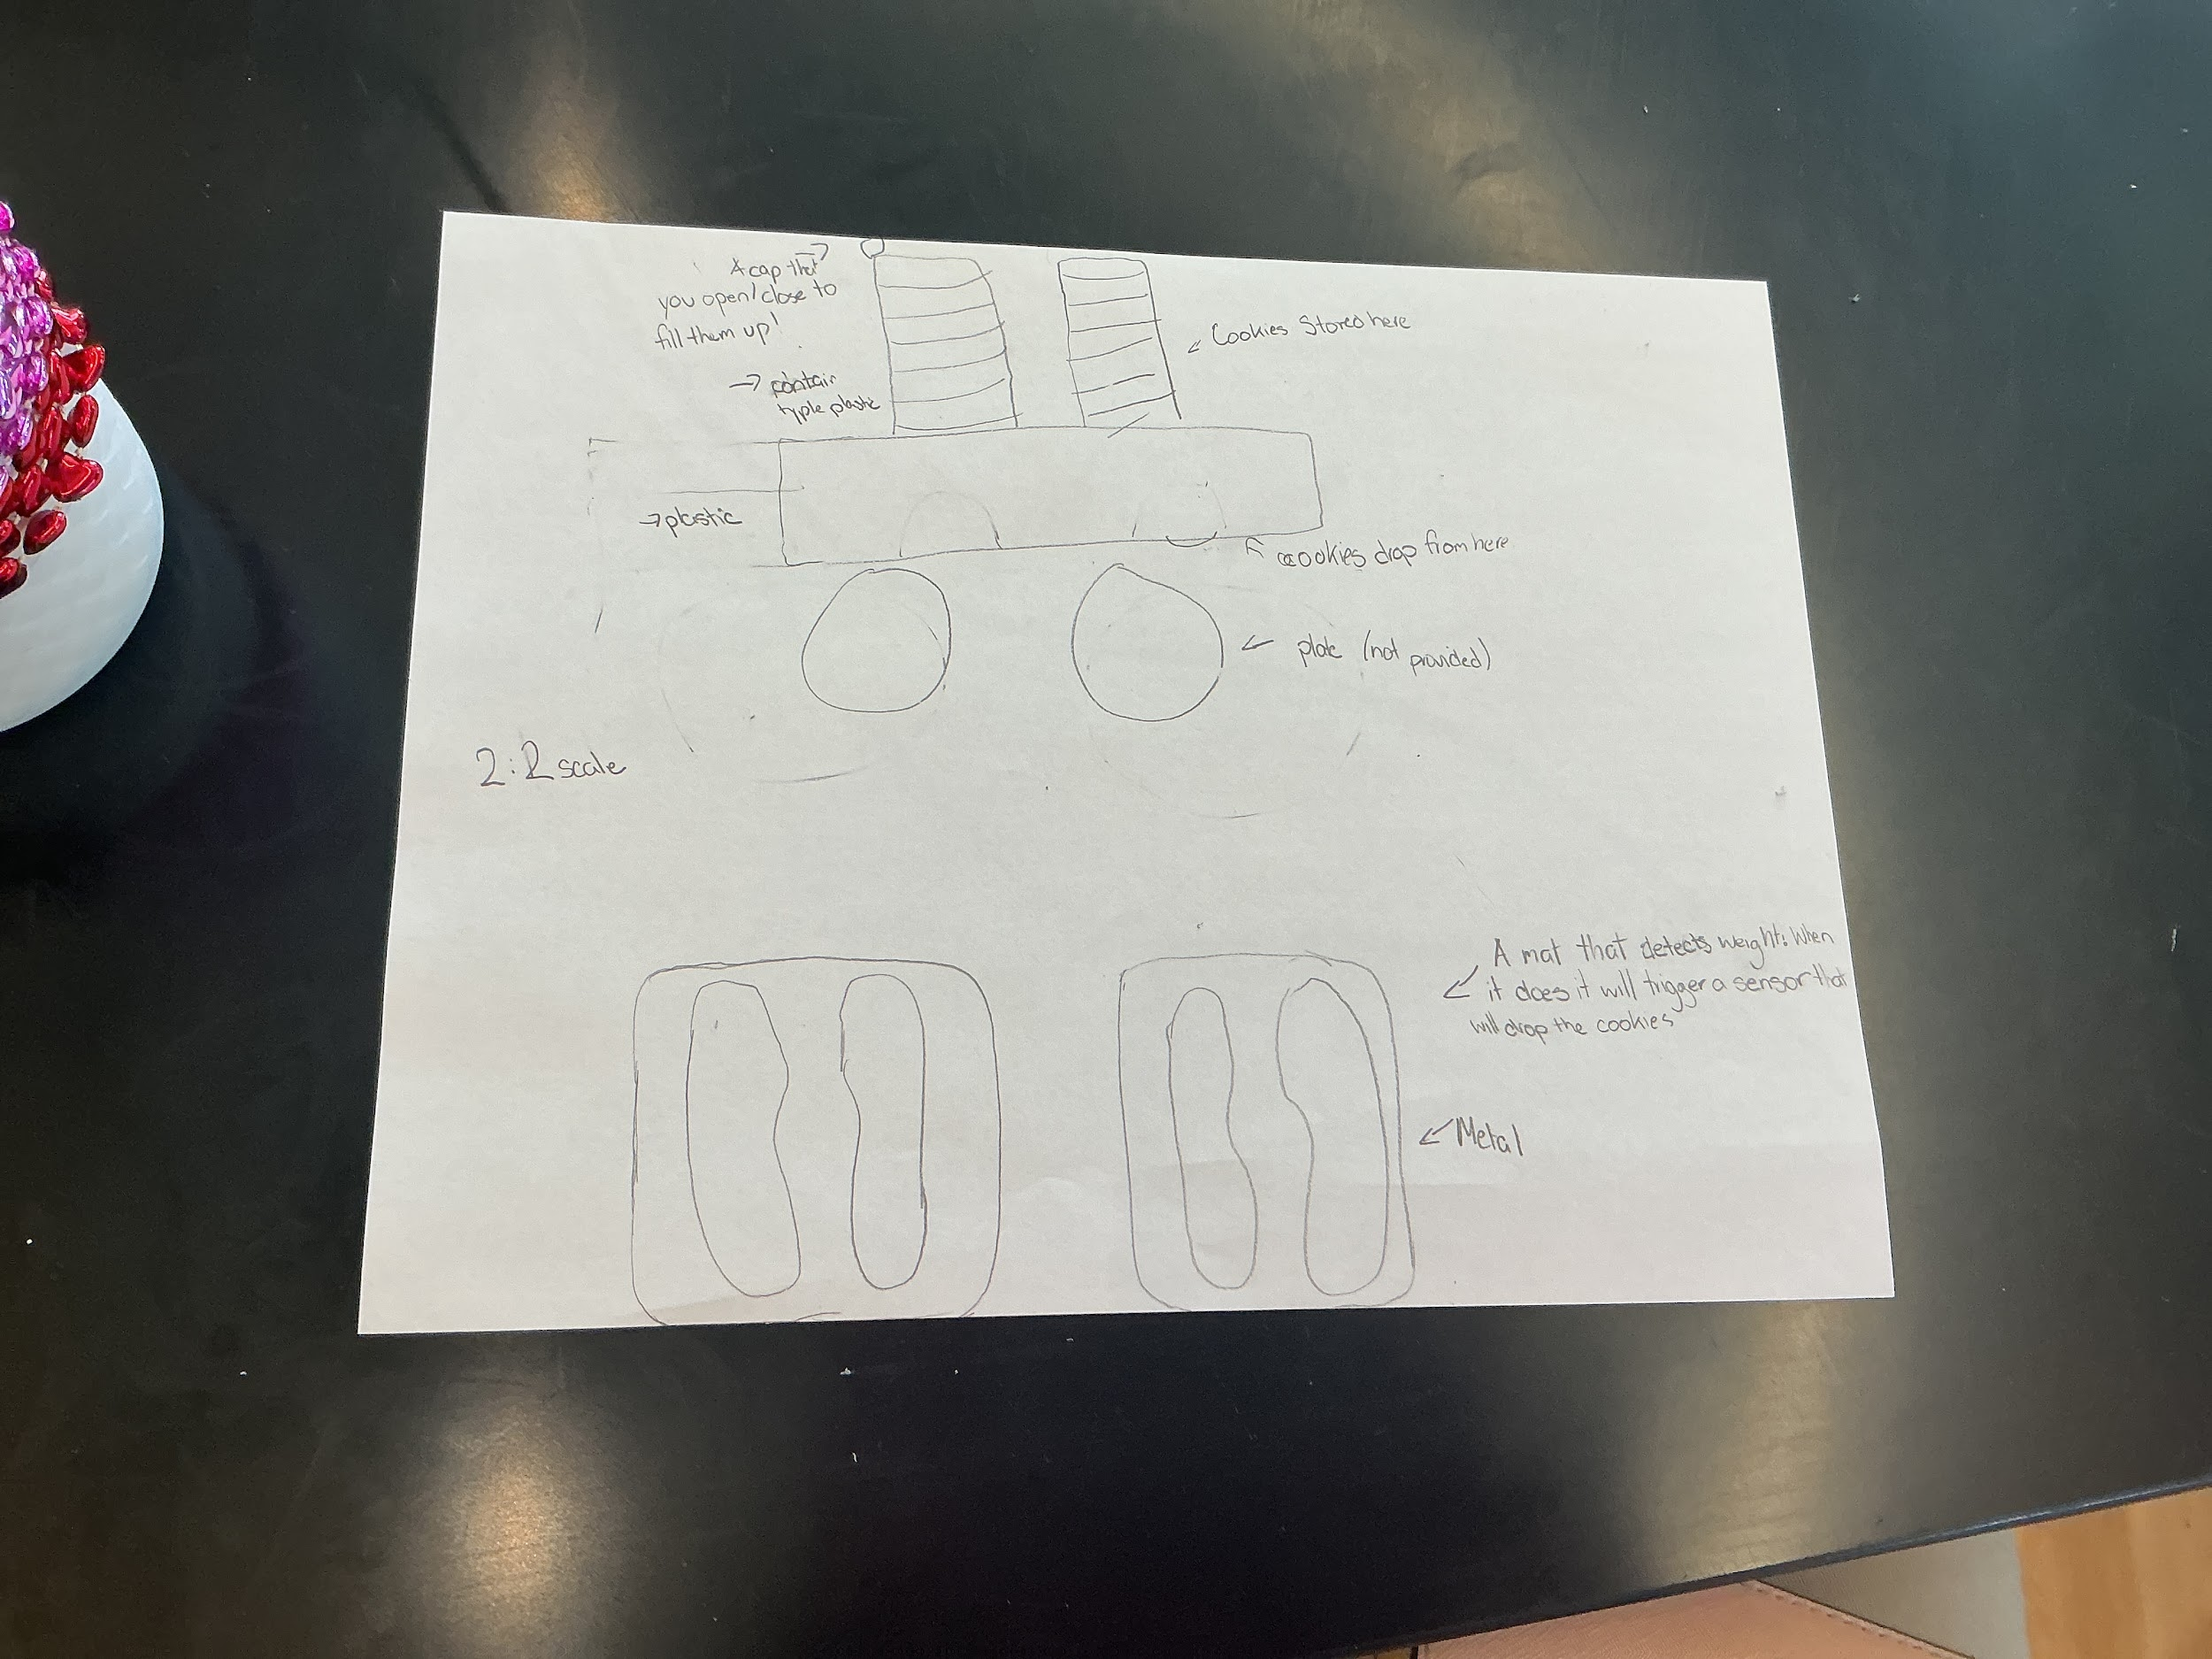 A cap that
you open/close to
fill them up!
Cookies Stored here
→ contain
type plastic
→ plastic
cookies drop from here
plate (not provided)
2:2 scale
A mat that detects weight: When
it does it will trigger a sensor that
will drop the cookies
Metal